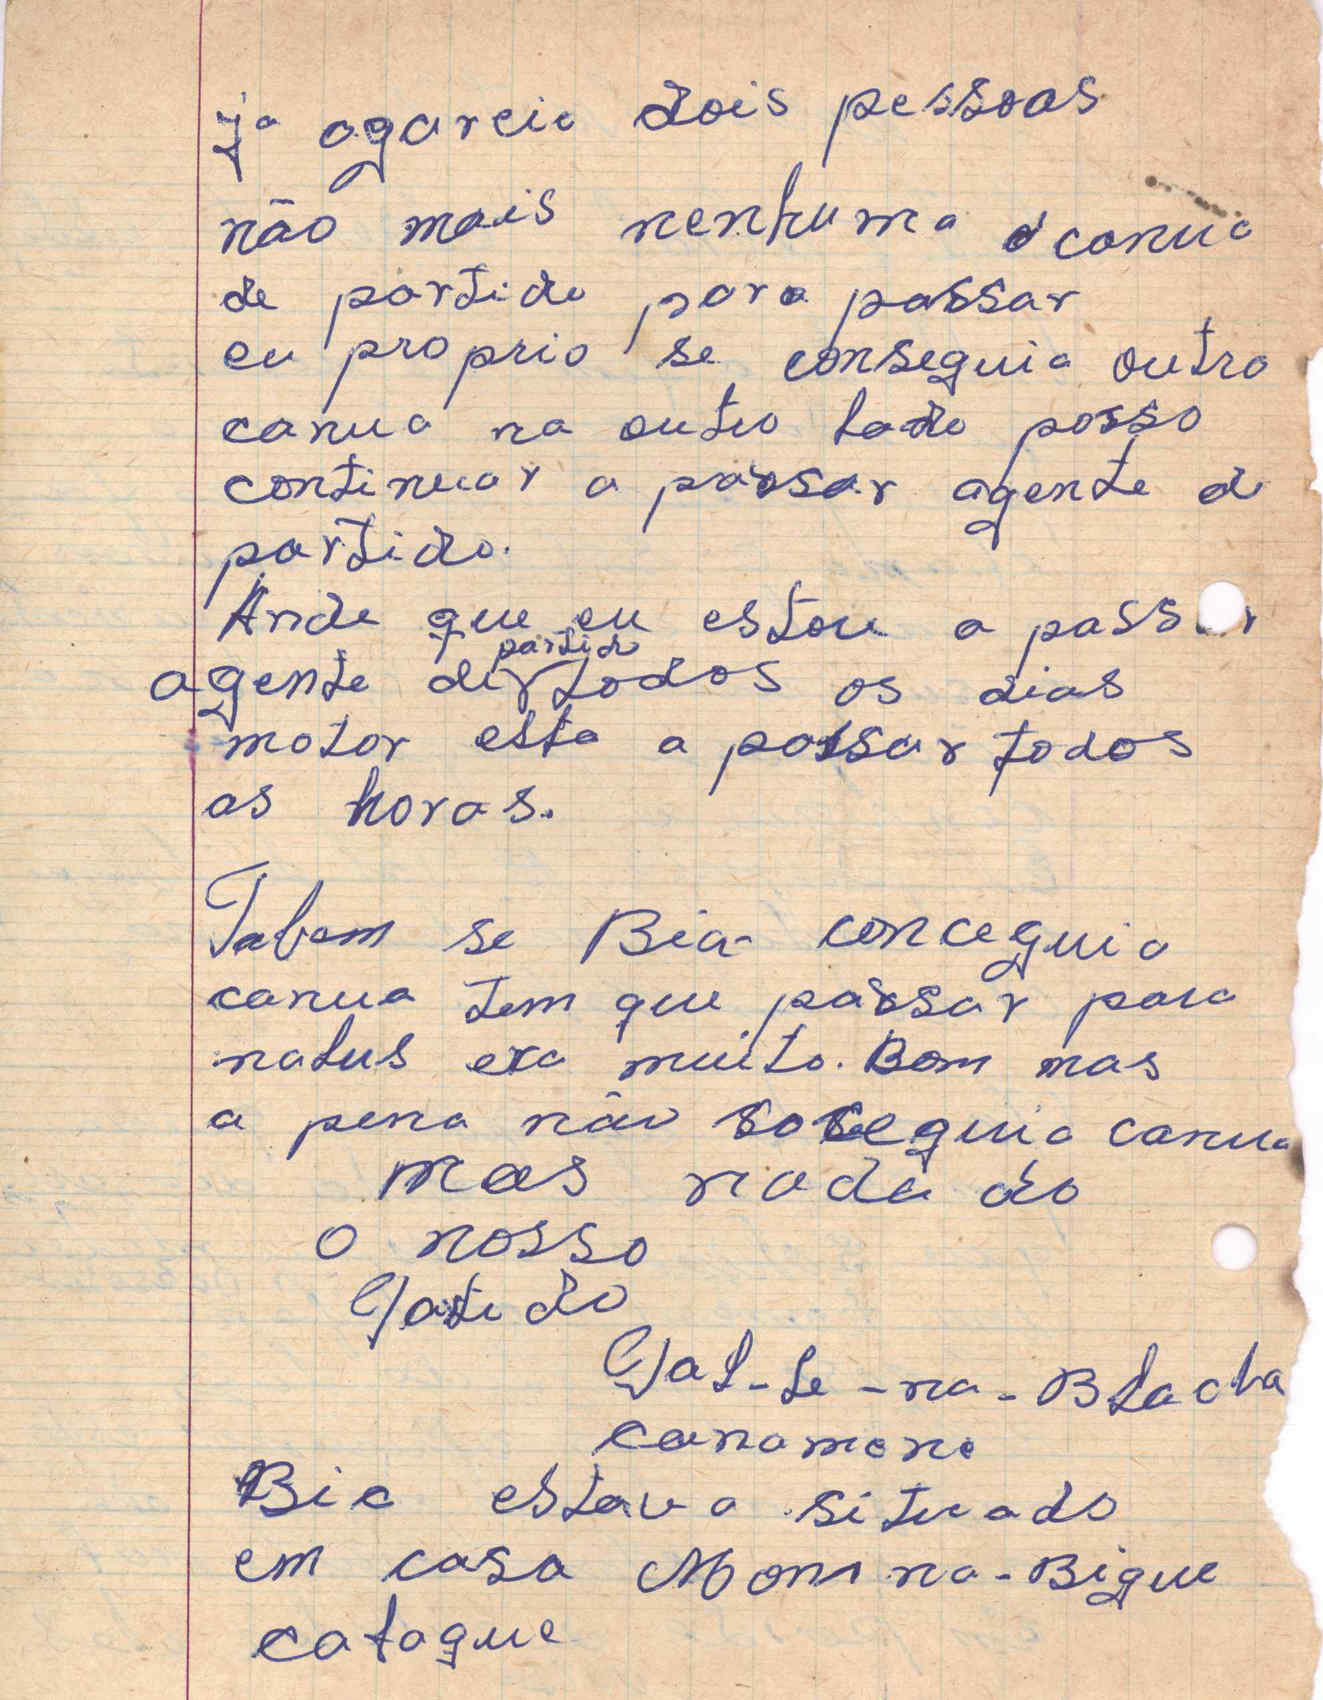 ja agareia dois pessoas
não mais nenhuma canua
de partido para passar
eu proprio se conseguia outra
canua na outro lado posso
continuar a passar agente do
partido.
Ande que eu estou a passar
partido
agente de todos os dias
motor esta a passar todos
as horas.
Tabem se Bia conceguia
canua tem que passar para
natus era muito. Bom mas
a pena não soseguia canua
mas nada do
o nosso
Patido
Gal-le-na-Blacha
canamone
Bia estava situado
em casa Mom na-Bigue
cataque